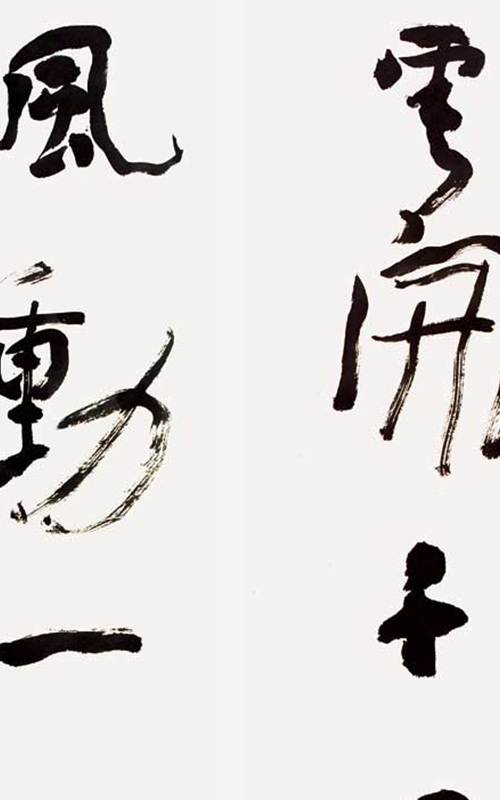 雲開千
風動一